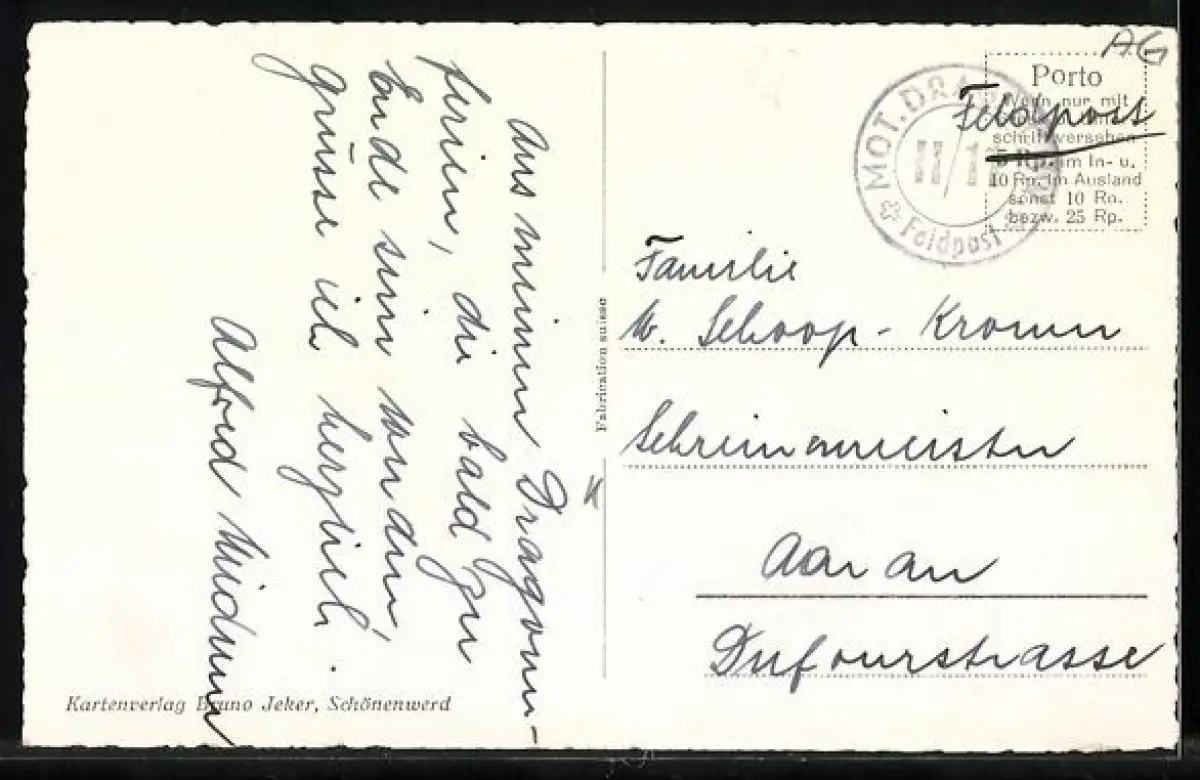 Aus meinen Dragoner-
ferien, die bald zu
Ende sein werden,
grüsse ich herzlich.
Alfred
Kartenverlag Bruno Jeker, Schönenwerd
Fabrication suisse
AG
Porto
Wenn nur mit
schrift versehen
5 Rp. im In- u.
10 Rp. im Ausland
sonst 10 Rp.
bezw. 25 Rp.
Feldpost
MOT. DRAG.
Feldpost
Familie
W. Schoop - Kromer
Schreinermeister
Aarau
Dufourstrasse